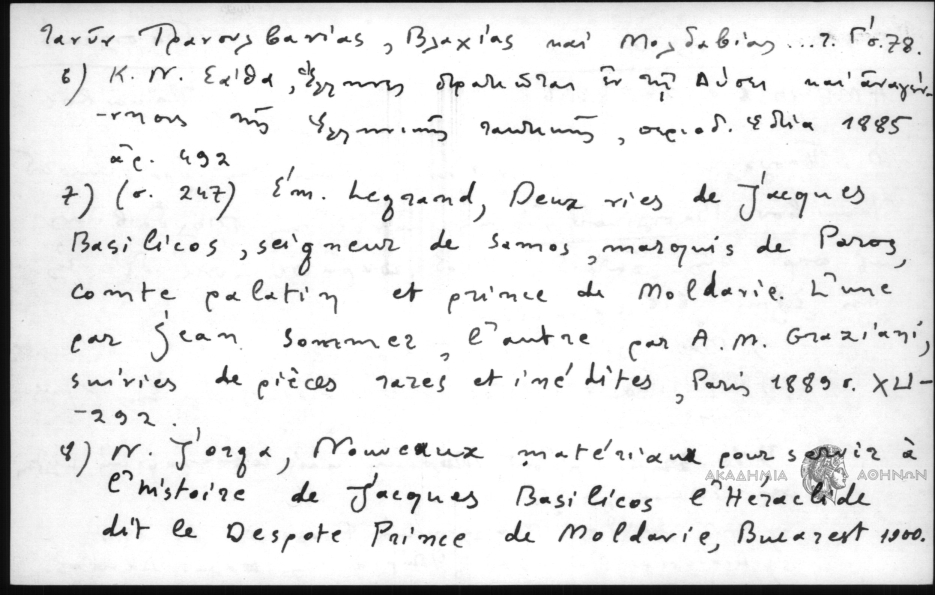 ταντῦν Τρανουλβανίας, Βλαχίας καί Μολδαβίας ... τ. Γ́ σ. 78.
6) Κ. Ν. Σάθα, Ἕλληνες στρατιῶται ἐν τῇ Δύσει καί ἀναγέν-
-νησις τῆς Ἑλληνικῆς τακτικῆς, περιοδ. Ἑστία 1885
ἀρ. 492
7) (σ. 247) Ém. Legrand, Deux vies de Jacques
Basilicos, seigneur de Samos, marquis de Paros,
comte palatin et prince de Moldavie. L'une
par Jean Sommer, l'autre par A. M. Graziani,
suivies de pièces rares et inédites, Paris 1889 σ. XLI-
-292.
8) N. Jorga, Nouveaux matériaux pour servir à
l'histoire de Jacques Basilicos l'Héraclide
dit le Despote Prince de Moldavie, Bucarest 1900.
ΑΚΑΔΗΜΙΑ ΑΘΗΝΩΝ